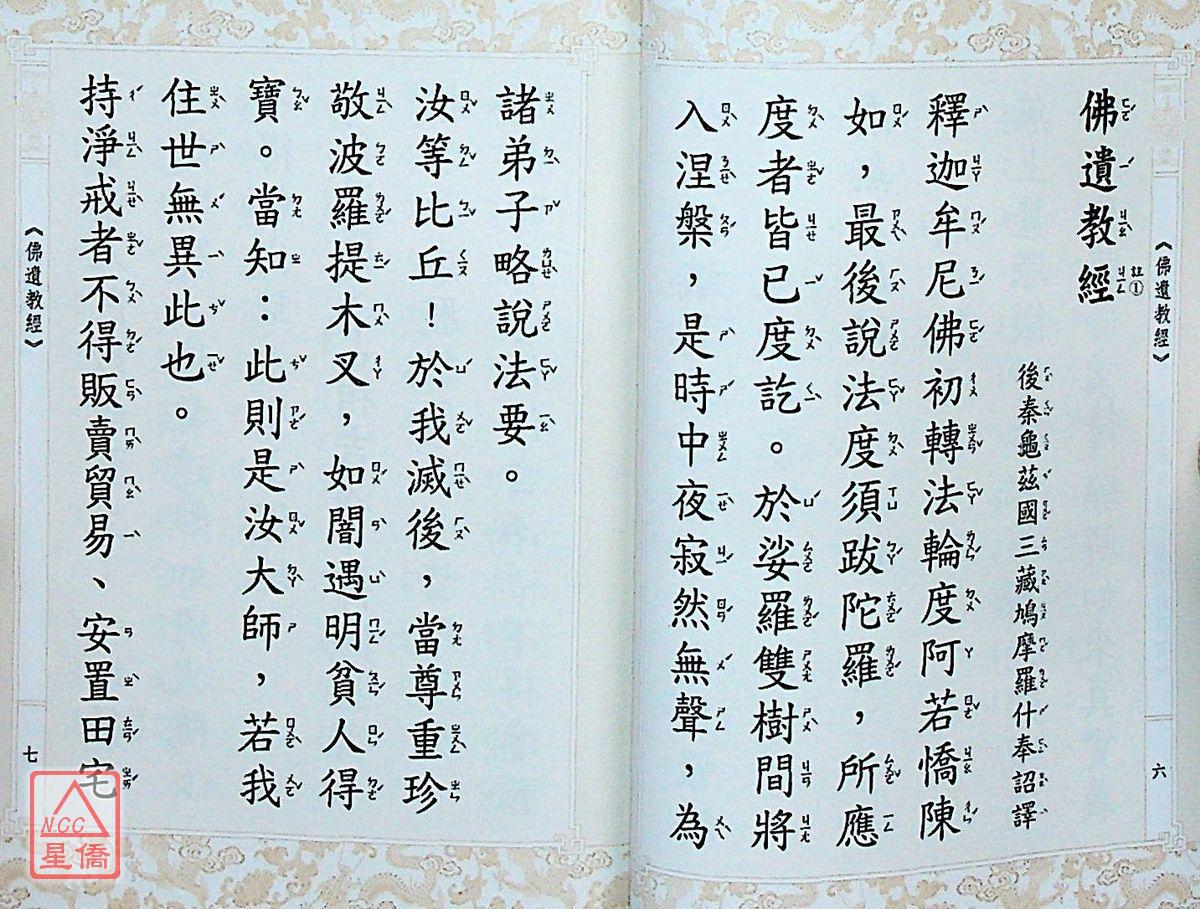 《佛遺教經》
六
佛遺教經 註①
後秦龜茲國三藏鳩摩羅什奉詔譯
釋迦牟尼佛初轉法輪度阿若憍陳
如，最後說法度須跋陀羅，所應
度者皆已度訖。於娑羅雙樹間將
入涅槃，是時中夜寂然無聲，為
諸弟子略說法要。
汝等比丘！於我滅後，當尊重珍
敬波羅提木叉，如闇遇明貧人得
寶。當知：此則是汝大師，若我
住世無異此也。
持淨戒者不得販賣貿易、安置田宅
《佛遺教經》
七
NCC
星僑